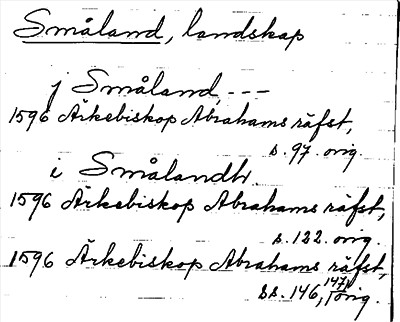 Småland, landskap
j Småland, ---
1596 Ärkebiskop Abrahams räfst,
s. 97. orig.
i Smålandh.
1596 Ärkebiskop Abrahams räfst,
s. 122. orig.
1596 Ärkebiskop Abrahams räfst,
ss. 146, 147, orig.